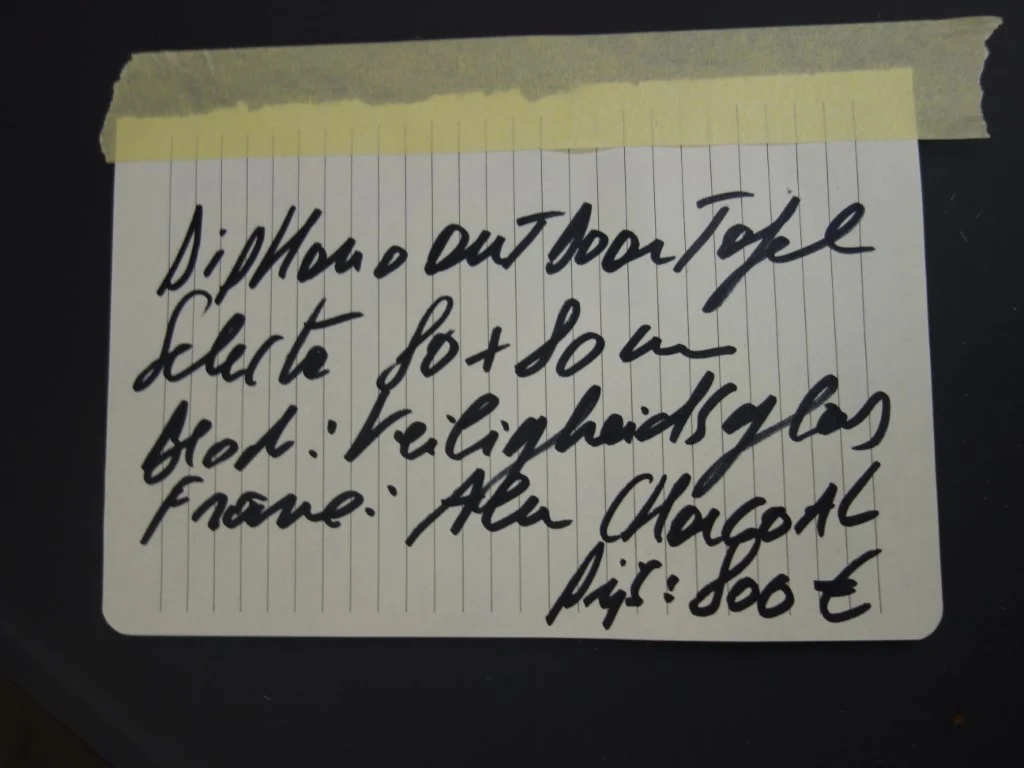 Diphano outdoor Tafel
Selecta 80 + 80 cm
Blad: Veiligheidsglas
Frame: Alu CHarcoAL
Prijs: 800 €